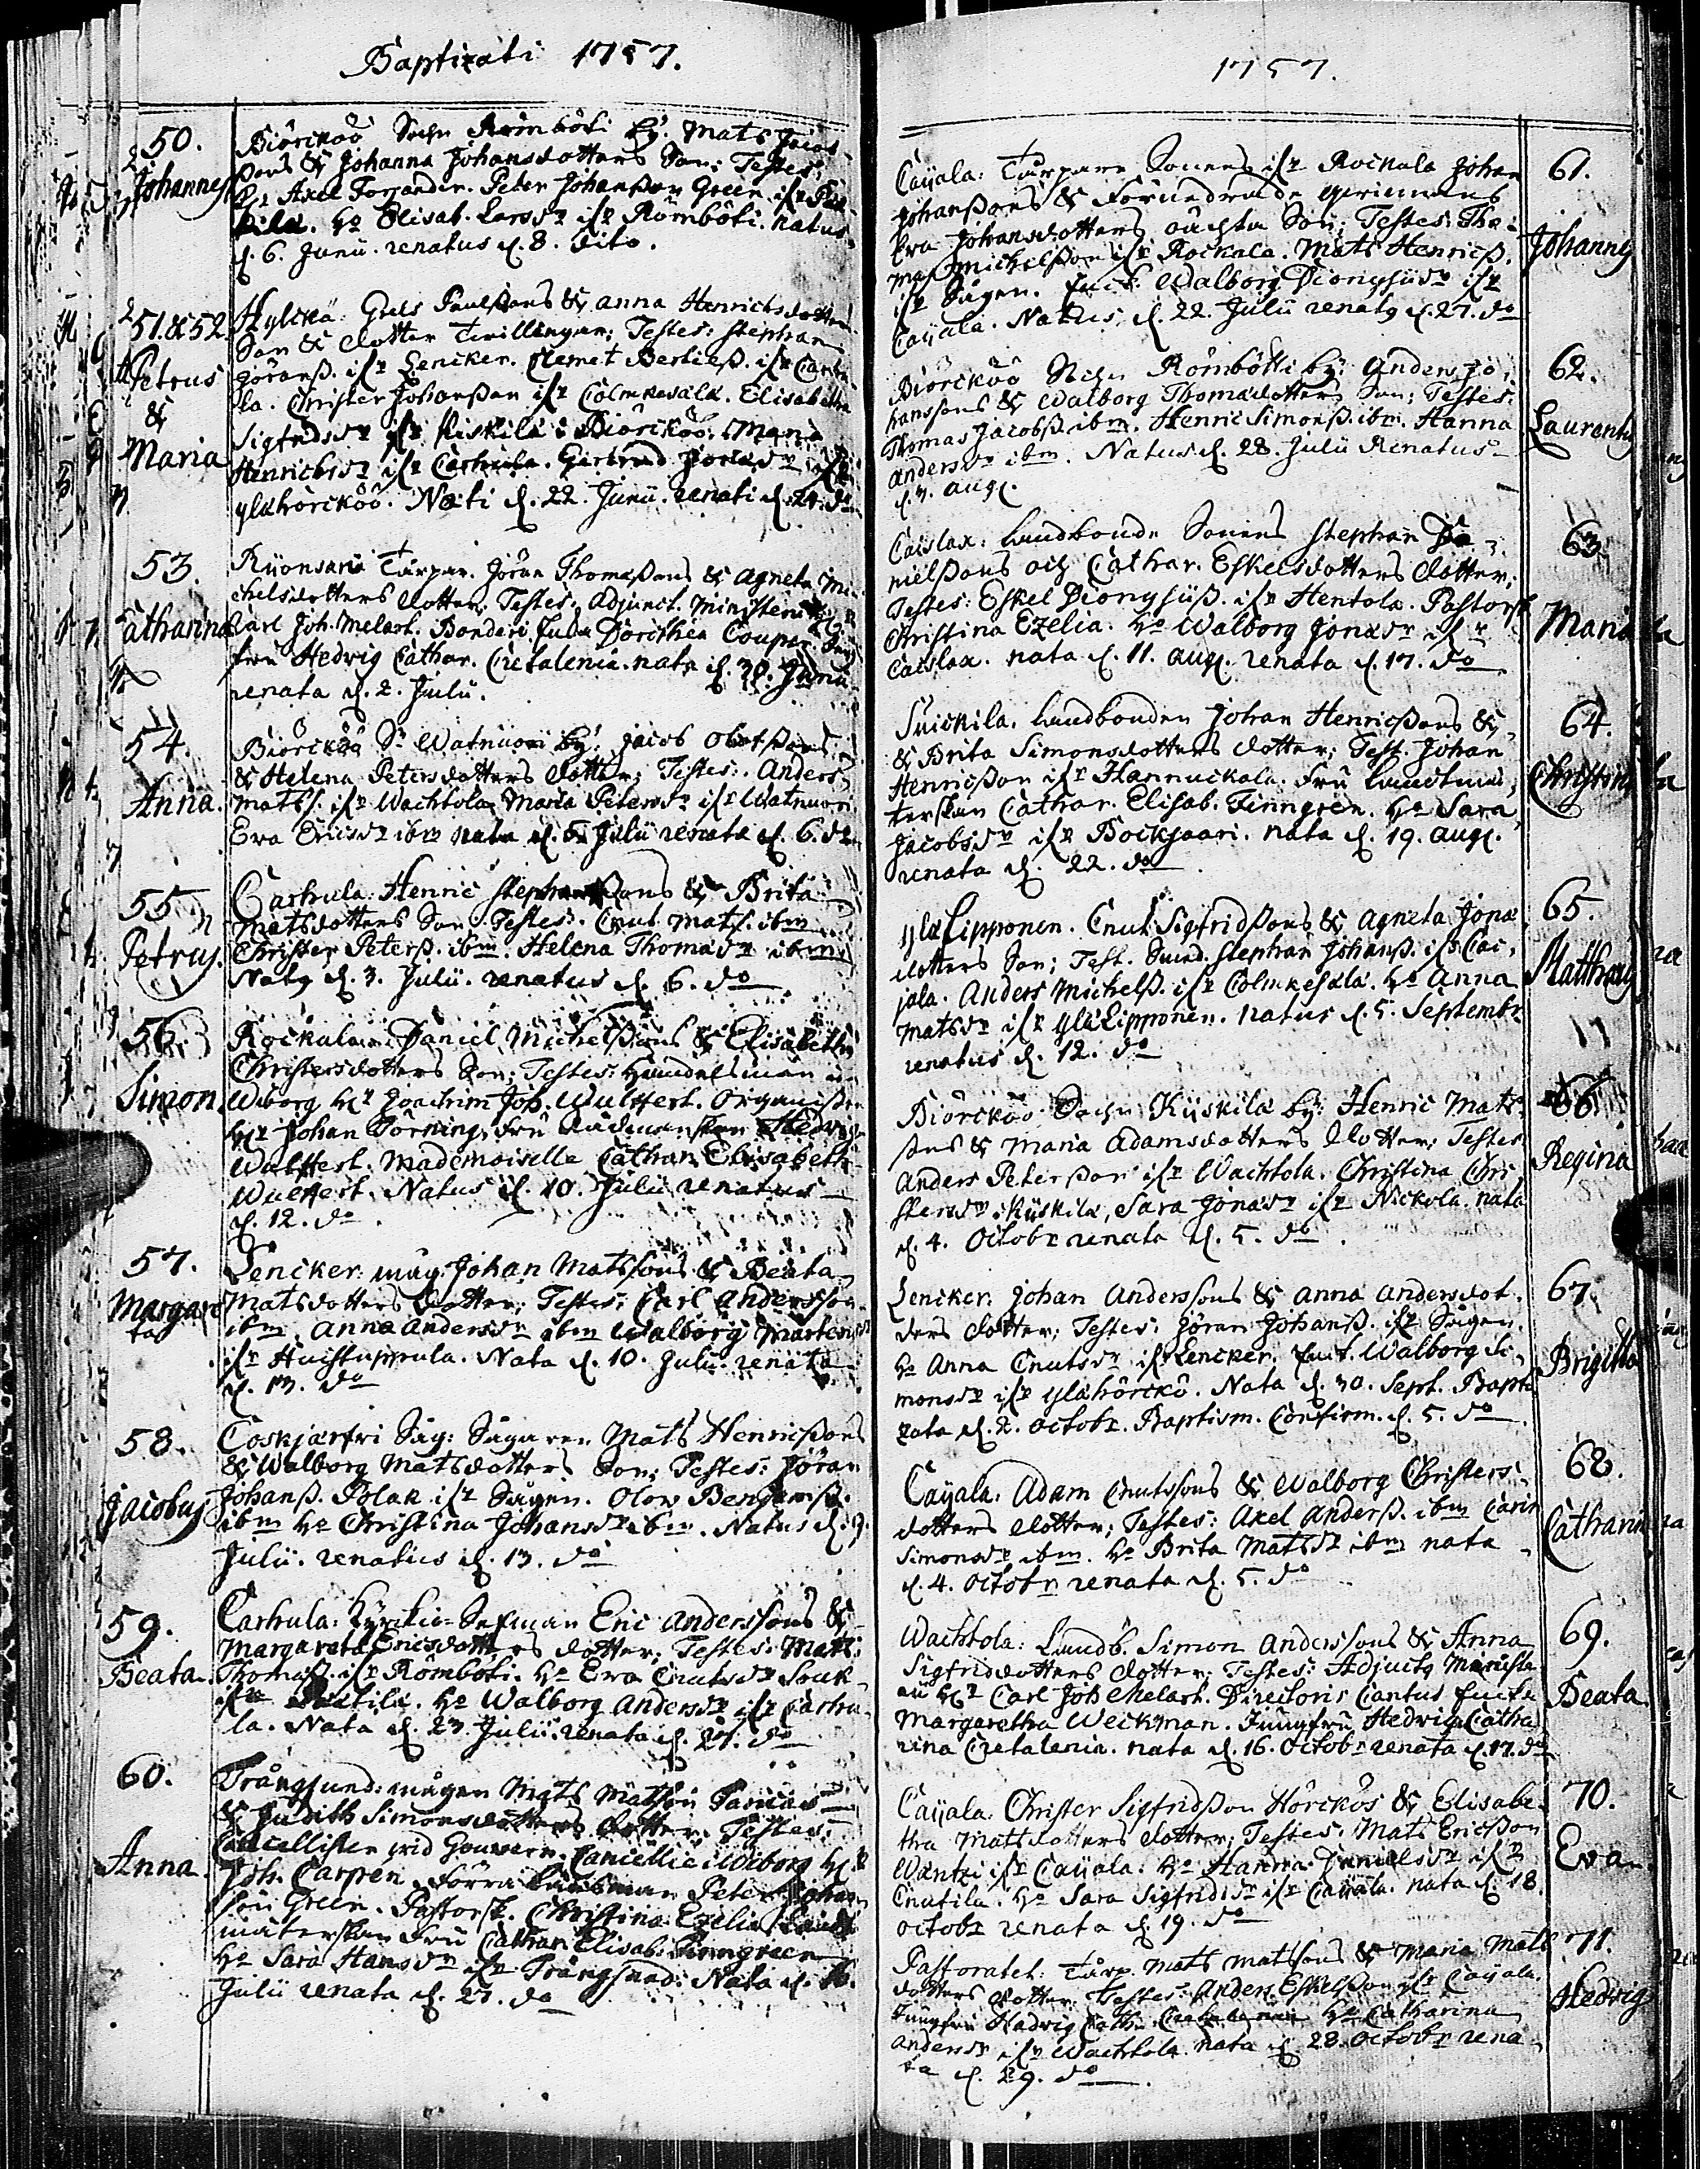 Baptizati 1757.
50.
Johannes
Biörcköö Sochn Römböti by: Mats Jacob
ßons & Johanna Johansdotters Son: Testes:
Hr Axel Forsander. Peter Johanßon Green ifr
kila. Ho Elisab. Larsdr ifr Römböti. natus
d. 6. Junii. renatus d. 8. dito.
51. & 52.
Petrus
&
Maria
Hylckä: Grels Paulßons & Anna Henrichsdotters
Son & dotter Twillingar; Testes: Stephan
Göranß. ifr Lencker. Clemet Bertilß. ifr Carhu
la. Christer Johanßon ifr Colmkesälä. Elisabetha
Sigfridsdr ifr Kiskilä i Biörcköö. Maria
Henrichsdr ifr Carhula. Gertrud Jonædr ifr
Ylähörcköö. Nati d. 22. Junii. renati d. 24. do
53.
Catharina
Ruonsaria Torpar. Jöran Thomæßons & Agneta Mi-
chelsdotters dotter, Testes: Adjunct. Ministerii Hr
Carl Joh. Melart. Bonderi Julia Dorothea Couper
fru Hedvig Cathar. Cretalenia. nata d. 30. Junii
renata d. 2. Julii.
54.
Anna.
Biörcköö Sn Watnuori by: Jacob Olofßons
& Helena Petersdotters dotter; Testes: Anders
Matsß. ifr Wachtola. Maria Petersdr ifr Watnuori
Eva Ericsdr ibm nata d. 5. Julii renata d. 6. do
55
Petrus.
Carhula: Henric Stephanßons & Brita
Matsdotters Son. Testes: Cnut Mats. ibm
Christer Petersß. ibm. Helena Thomædr ibm
Natg d. 3. Julii. renatus d. 6. do
56.
Simon.
Rockala: Daniel Michelßons & Elisabetha
Christersdotters Son; Testes: Handelsman i
Wiborg Hr Joachim Joh. Wulffert. Organisten
Hr Johan Törning, fru Rådmanskan Hedvig
Wulffert. Mademoiselle Cathar. Elisabeth
Wulffert. Natus d. 10. Julii renatus
d. 12. do
57.
Margare
ta
Lencker: måg. Johan Matssons & Beata
Matsdotters dotter; Testes: Carl Andersson
ibm. Anna Andersdr ibm Walborg Mårtensdr
ifr Huistuppula. Nata d. 10. Julii. renata
d. 13. do
58.
Jacobus
Coskjerfvi Såg: Sågaren Mats Henricßons
& Walborg Matsdotters Son; Testes: Jöran
Johanß. Polak ifr Sågen. Olov Benjamß.
ibm Ho Christina Johansdr ibm. Natus d. 9.
Julii. renatus d. 13. do
59.
Beata.
Carhula: Kyrkio-Sexman Eric Anderssons &
Margareta Ericsdotters dotter, Testes: Mats
Thomæß. ifr Römböti. Ho Eva Cnutsdr
ifr . Ho Walborg Andersdr ifr Carhu-
la. Nata d. 23. Julii. renata d. 27. do
60.
Anna.
Trångsund: mågen Mats Matsson
& Judith Simonsdotters dotter. Testes:
Cancellisten vid Gouvern. Cancellie i Wiborg Hr
Joh. Carpen. Förra Länsman Peter Johan-
son Green. Pastorsk. Christina Ezelia Landt
mäterskan Fru Cathar. Elisab. Finngreen
Ho Sara Hansdr ifr Trångsund. Nata d. 16.
Julii renata d. 27. do
1757.
61.
Johannes
Cayala: Torpare Sonens ifr Rockala Johan
Johanßons & Förnedrade Qvinnans
Eva Johansdotters oächta Son; Testes: Tho-
mas Michelßon ifr Rockala. Mats Henricß.
ifr Sågen. Walborg Dionysiidr ifr
Cayala. Natus d. 22. Julii renatg d. 27. do
62.
Laurentg
Biörcköö Sochn Römbötti by: Anders Jo-
hanssons & Walborg Thomædotters Son; Testes:
Thomas Jacobß ibm. Henric Simonß. ibm. Hanna
Andersdr ibm. Natus d. 28. Julii Renatus
d. 3. Aug.
63.
Maria
Caislax: Landbonde Sonens Stephan Da-
nielßons och Cathar. Eskelsdotters dotter;
Testes: Eskel Dionysiiß. ifr Hentola. Pastorsk
Christina Ezelia: Ho Walborg Jonædr ifr
Caislax. nata d. 11. Aug. renata d. 17. do
64.
Christina
Suickila. Landbonden Johan Henricßons &
& Brita Simonsdotters dotter; Test. Johan
Henricßon ifr Hannuckala. Fru Landtmä-
terskan Cathar. Elisab. Finngren. Ho Sara
Jacobsdr ifr Bockjaari. nata d. 19. Aug.
renata d. 22. do
65.
Matthæus
Ylä Lipponen. Cnut Sigfridßons & Agneta Jonæ
dotters Son; Test. Smed. Stephan Johanß. ifr Cai-
jala. Anders Michelß. ifr Colmkesälä. Ho Anna
Matsdr ifr Ylä Lipponen. natus d. 5. Septembr.
renatus d. 12. do
66.
Regina
Biörcköö Sochn Kiiskilä by: Henric Mats-
sons & Maria Adamsdotters dotter: Testes:
Anders Peterßon ifr Wachtola. Christina Chri-
stersdr Kiiskilä, Sara Jonædr ifr Nickola. nata
d. 4. Octobr renata d. 5. do.
67.
Brigitta
Lencker: Johan Anderssons & Anna Andersdot-
ters dotter; Testes: Jöran Johanß. ifr Sågen.
Ho Anna Cnutsdr ifr Lencker. Walborg Si-
monsdr ifr Ylähörckö. Nata d. 30. Sept. Bapti
zata d. 2. Octobr. Baptism. Confirm. d. 5. do
68.
Catharina
Cayala: Adam Cnutssons & Walborg Christers-
dotters dotter; Testes: Axel Andersß. ibm Carin
Simonsdr ibm. Ho Brita Matsdr ibm nata
d. 4. Octobr renata d. 5. do
69.
Beata
Wachtola: Landb. Simon Anderssons & Anna
Sigfridsdotters dotter; Testes: Adjuctg Ministe-
rii Hr Carl Joh Melart. Directoris Cantus
Margaretha Weckman. Jungfru Hedvig Catha-
rina Cretalenia. nata d. 16. Octobr renata d. 17. do
70.
Eva
Cayala: Christer Sigfridßon Hörckös & Elisabe-
tha Matsdotters dotter; Testes: Mats Ericßon
Wäntzi ifr Cayala. Ho Hanna Danielsdr ifr
Cnutila. Ho Sara Sigfridsdr ifr Cayala. nata d. 18.
Octobr renata d. 19. do
71.
Hedvig
Pastoratet: Torp. Mats Matssons & Maria Mats
dotters dotter. Testes: Anders Eskelßon ifr Cayala.
Jungfru Hedvig Cath. Cretalenia Ho Catharina
Andersdr ifr Wachtola. nata d. 28. Octobr rena-
ta d. 29. do